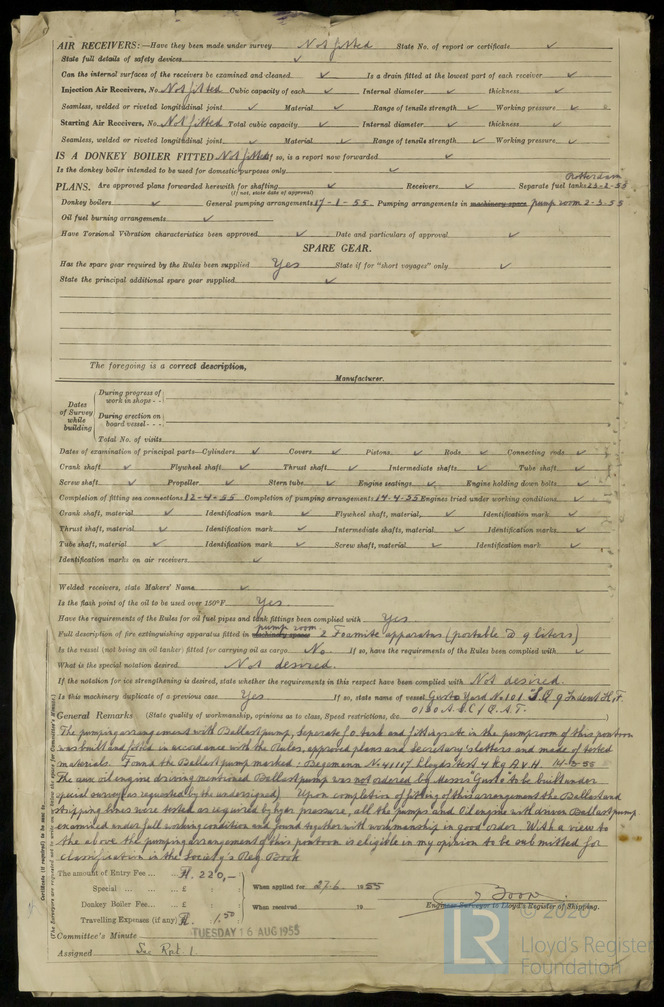 AIR RECEIVERS:—Have they been made under survey Not fitted State No. of report or certificate ✓
State full details of safety devices ✓
Can the internal surfaces of the receivers be examined and cleaned ✓ Is a drain fitted at the lowest part of each receiver ✓
Injection Air Receivers, No. Not fitted Cubic capacity of each ✓ Internal diameter ✓ thickness ✓
Seamless, welded or riveted longitudinal joint ✓ Material ✓ Range of tensile strength ✓ Working pressure ✓
Starting Air Receivers, No. Not fitted Total cubic capacity ✓ Internal diameter ✓ thickness ✓
Seamless, welded or riveted longitudinal joint ✓ Material ✓ Range of tensile strength ✓ Working pressure ✓
IS A DONKEY BOILER FITTED Not fitted If so, is a report now forwarded ✓
Is the donkey boiler intended to be used for domestic purposes only ✓
Rotterdam
PLANS. Are approved plans forwarded herewith for shafting ✓ Receivers ✓ Separate fuel tanks 23-2-55
(If not, state date of approval)
Donkey boilers ✓ General pumping arrangements 17-1-55. Pumping arrangements in machinery space pump room 2-3-55
Oil fuel burning arrangements ✓
Have Torsional Vibration characteristics been approved ✓ Date and particulars of approval ✓
SPARE GEAR.
Has the spare gear required by the Rules been supplied Yes State if for "short voyages" only ✓
State the principal additional spare gear supplied ✓
The foregoing is a correct description,
Manufacturer.
Dates of Survey while building
During progress of work in shops - -
During erection on board vessel - - -
Total No. of visits
Dates of examination of principal parts—Cylinders ✓ Covers ✓ Pistons ✓ Rods ✓ Connecting rods ✓
Crank shaft ✓ Flywheel shaft ✓ Thrust shaft ✓ Intermediate shafts ✓ Tube shaft ✓
Screw shaft ✓ Propeller ✓ Stern tube ✓ Engine seatings ✓ Engine holding down bolts ✓
Completion of fitting sea connections 12-4-55 Completion of pumping arrangements 14-4-55 Engines tried under working conditions ✓
Crank shaft, material ✓ Identification mark ✓ Flywheel shaft, material ✓ Identification mark ✓
Thrust shaft, material ✓ Identification mark ✓ Intermediate shafts, material ✓ Identification marks ✓
Tube shaft, material ✓ Identification mark ✓ Screw shaft, material ✓ Identification mark ✓
Identification marks on air receivers ✓
Welded receivers, state Makers' Name ✓
Is the flash point of the oil to be used over 150°F Yes.
Have the requirements of the Rules for oil fuel pipes and tank fittings been complied with Yes
pump room
Full description of fire extinguishing apparatus fitted in machinery spaces 2 Foamite apparatus (portable @ 9 liters)
Is the vessel (not being an oil tanker) fitted for carrying oil as cargo No If so, have the requirements of the Rules been complied with ✓
What is the special notation desired Not desired.
If the notation for ice strengthening is desired, state whether the requirements in this respect have been complied with Not desired.
Is this machinery duplicate of a previous case Yes If so, state name of vessel Gusto Yard No 101
General Remarks (State quality of workmanship, opinions as to class, Speed restrictions, &c.
The pumping arrangement with Ballast pump, separate f.o. tank and fittings etc in the pumproom of this pontoon
was built and fitted in accordance with the Rules, approved plans and Secretary's letters and made of tested
materials. Found the Ballast pump marked: Begemann No 41117 Lloyds test 4 kg A.v.H. 14-4-55
The aux oil engine driving mentioned Ballast pump was not ordered by Messrs "Gusto" to be built under
special survey (as requested by the undersigned) Upon completion of fitting of this arrangement the Ballast and
stripping lines were tested as required by hydr pressure, all the pumps and Oil engine with driven Ballast pump
examined under full working condition and found together with workmanship in good order With a view to
the above the pumping arrangement of this pontoon is eligible in my opinion to be submitted for
classification in the Society's Reg Book
The amount of Entry Fee ... Fl. 220,—
Special ... ... £ : :
When applied for 27-6 1955
Donkey Boiler Fee... ... £ : :
When received 19
Travelling Expenses (if any) Fl. 1.50
Engineer Surveyor to Lloyd's Register of Shipping.
Committee's Minute TUESDAY 16 AUG 1955
Assigned See Rpt. 1
Certificate (if required) to be sent to
(The Surveyors are requested not to write on or below the space for Committee's Minute.)
LR © 2020
Lloyd's Register
Foundation